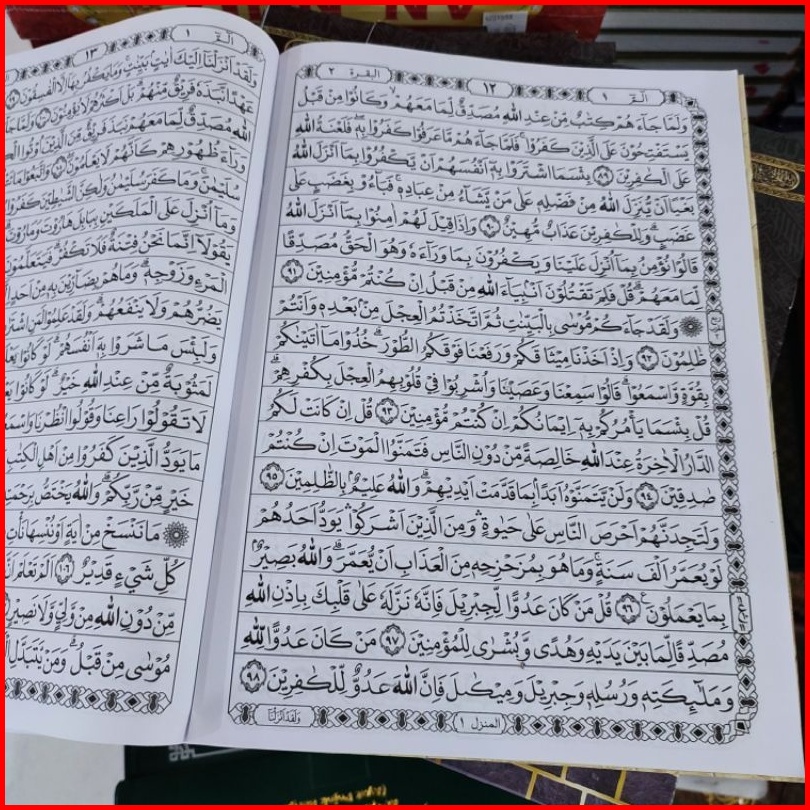 الٓمّٓ ١
١٢
البقرة ٢
وَلَمَّا جَآءَهُمْ كِتٰبٌ مِّنْ عِنْدِ اللّٰهِ مُصَدِّقٌ لِّمَا مَعَهُمْ ۙ وَكَانُوْا مِنْ قَبْلُ
يَسْتَفْتِحُوْنَ عَلَى الَّذِيْنَ كَفَرُوْا ۚ فَلَمَّا جَآءَهُمْ مَّا عَرَفُوْا كَفَرُوْا بِهٖ ۖ فَلَعْنَةُ اللّٰهِ
عَلَى الْكٰفِرِيْنَ ۝٨٩ بِئْسَمَا اشْتَرَوْا بِهٖٓ اَنْفُسَهُمْ اَنْ يَّكْفُرُوْا بِمَآ اَنْزَلَ اللّٰهُ
بَغْيًا اَنْ يُّنَزِّلَ اللّٰهُ مِنْ فَضْلِهٖ عَلٰى مَنْ يَّشَآءُ مِنْ عِبَادِهٖ ۚ فَبَآءُوْ بِغَضَبٍ عَلٰى
غَضَبٍ ۗ وَلِلْكٰفِرِيْنَ عَذَابٌ مُّهِيْنٌ ۝٩٠ وَاِذَا قِيْلَ لَهُمْ اٰمِنُوْا بِمَآ اَنْزَلَ اللّٰهُ
قَالُوْا نُؤْمِنُ بِمَآ اُنْزِلَ عَلَيْنَا وَيَكْفُرُوْنَ بِمَا وَرَآءَهٗ وَهُوَ الْحَقُّ مُصَدِّقًا
لِّمَا مَعَهُمْ ۗ قُلْ فَلِمَ تَقْتُلُوْنَ اَنْۢبِيَآءَ اللّٰهِ مِنْ قَبْلُ اِنْ كُنْتُمْ مُّؤْمِنِيْنَ ۝٩١
وَلَقَدْ جَآءَكُمْ مُّوْسٰى بِالْبَيِّنٰتِ ثُمَّ اتَّخَذْتُمُ الْعِجْلَ مِنْۢ بَعْدِهٖ وَاَنْتُمْ
ظٰلِمُوْنَ ۝٩٢ وَاِذْ اَخَذْنَا مِيْثَاقَكُمْ وَرَفَعْنَا فَوْقَكُمُ الطُّوْرَ ۗ خُذُوْا مَآ اٰتَيْنٰكُمْ
بِقُوَّةٍ وَّاسْمَعُوْا ۗ قَالُوْا سَمِعْنَا وَعَصَيْنَا وَاُشْرِبُوْا فِيْ قُلُوْبِهِمُ الْعِجْلَ بِكُفْرِهِمْ ۗ
قُلْ بِئْسَمَا يَأْمُرُكُمْ بِهٖٓ اِيْمَانُكُمْ اِنْ كُنْتُمْ مُّؤْمِنِيْنَ ۝٩٣ قُلْ اِنْ كَانَتْ لَكُمُ
الدَّارُ الْاٰخِرَةُ عِنْدَ اللّٰهِ خَالِصَةً مِّنْ دُوْنِ النَّاسِ فَتَمَنَّوُا الْمَوْتَ اِنْ كُنْتُمْ
صٰدِقِيْنَ ۝٩٤ وَلَنْ يَّتَمَنَّوْهُ اَبَدًۢا بِمَا قَدَّمَتْ اَيْدِيْهِمْ ۗ وَاللّٰهُ عَلِيْمٌۢ بِالظّٰلِمِيْنَ ۝٩٥
وَلَتَجِدَنَّهُمْ اَحْرَصَ النَّاسِ عَلٰى حَيٰوةٍ ۛ وَمِنَ الَّذِيْنَ اَشْرَكُوْا ۛ يَوَدُّ اَحَدُهُمْ
لَوْ يُعَمَّرُ اَلْفَ سَنَةٍ ۚ وَمَا هُوَ بِمُزَحْزِحِهٖ مِنَ الْعَذَابِ اَنْ يُّعَمَّرَ ۗ وَاللّٰهُ بَصِيْرٌۢ
بِمَا يَعْمَلُوْنَ ۝٩٦ قُلْ مَنْ كَانَ عَدُوًّا لِّجِبْرِيْلَ فَاِنَّهٗ نَزَّلَهٗ عَلٰى قَلْبِكَ بِاِذْنِ اللّٰهِ
مُصَدِّقًا لِّمَا بَيْنَ يَدَيْهِ وَهُدًى وَّبُشْرٰى لِلْمُؤْمِنِيْنَ ۝٩٧ مَنْ كَانَ عَدُوًّا لِّلّٰهِ
وَمَلٰٓئِكَتِهٖ وَرُسُلِهٖ وَجِبْرِيْلَ وَمِيْكٰىلَ فَاِنَّ اللّٰهَ عَدُوٌّ لِّلْكٰفِرِيْنَ ۝٩٨
المنزل ١
وَلَقَدْ اَنْزَلْنَآ
الٓمّٓ ١
١٣
وَلَقَدْ اَنْزَلْنَآ اِلَيْكَ اٰيٰتٍۢ بَيِّنٰتٍ ۚ وَمَا يَكْفُرُ بِهَآ اِلَّا الْفٰسِقُوْنَ ۝٩٩
عَهْدًا نَّبَذَهٗ فَرِيْقٌ مِّنْهُمْ ۗ بَلْ اَكْثَرُهُمْ لَا يُؤْمِنُوْنَ ۝١٠٠ وَلَمَّا جَآءَ
اللّٰهِ مُصَدِّقٌ لِّمَا مَعَهُمْ نَبَذَ فَرِيْقٌ مِّنَ الَّذِيْنَ اُوْتُوا
وَرَآءَ ظُهُوْرِهِمْ كَاَنَّهُمْ لَا يَعْلَمُوْنَ ۝١٠١ وَاتَّبَعُوْا مَا
سُلَيْمٰنَ ۚ وَمَا كَفَرَ سُلَيْمٰنُ وَلٰكِنَّ الشَّيٰطِيْنَ كَفَرُوْا
وَمَآ اُنْزِلَ عَلَى الْمَلَكَيْنِ بِبَابِلَ هَارُوْتَ وَمَارُوْتَ
يَقُوْلَآ اِنَّمَا نَحْنُ فِتْنَةٌ فَلَا تَكْفُرْ ۗ فَيَتَعَلَّمُوْنَ
الْمَرْءِ وَزَوْجِهٖ ۗ وَمَا هُمْ بِضَآرِّيْنَ بِهٖ مِنْ اَحَدٍ
يَضُرُّهُمْ وَلَا يَنْفَعُهُمْ ۗ وَلَقَدْ عَلِمُوْا لَمَنِ
وَلَبِئْسَ مَا شَرَوْا بِهٖٓ اَنْفُسَهُمْ ۗ لَوْ كَانُوْا
لَمَثُوْبَةٌ مِّنْ عِنْدِ اللّٰهِ خَيْرٌ ۗ لَوْ كَانُوْا
لَا تَقُوْلُوْا رَاعِنَا وَقُوْلُوا انْظُرْنَا
مَا يَوَدُّ الَّذِيْنَ كَفَرُوْا مِنْ اَهْلِ الْكِتٰبِ
خَيْرٍ مِّنْ رَّبِّكُمْ ۗ وَاللّٰهُ يَخْتَصُّ بِرَحْمَتِهٖ
مَا نَنْسَخْ مِنْ اٰيَةٍ اَوْ نُنْسِهَا نَأْتِ
كُلِّ شَيْءٍ قَدِيْرٌ ۝١٠٦ اَلَمْ تَعْلَمْ
مِّنْ دُوْنِ اللّٰهِ مِنْ وَّلِيٍّ وَّلَا نَصِيْرٍ
مُوْسٰى مِنْ قَبْلُ ۗ وَمَنْ يَّتَبَدَّلِ